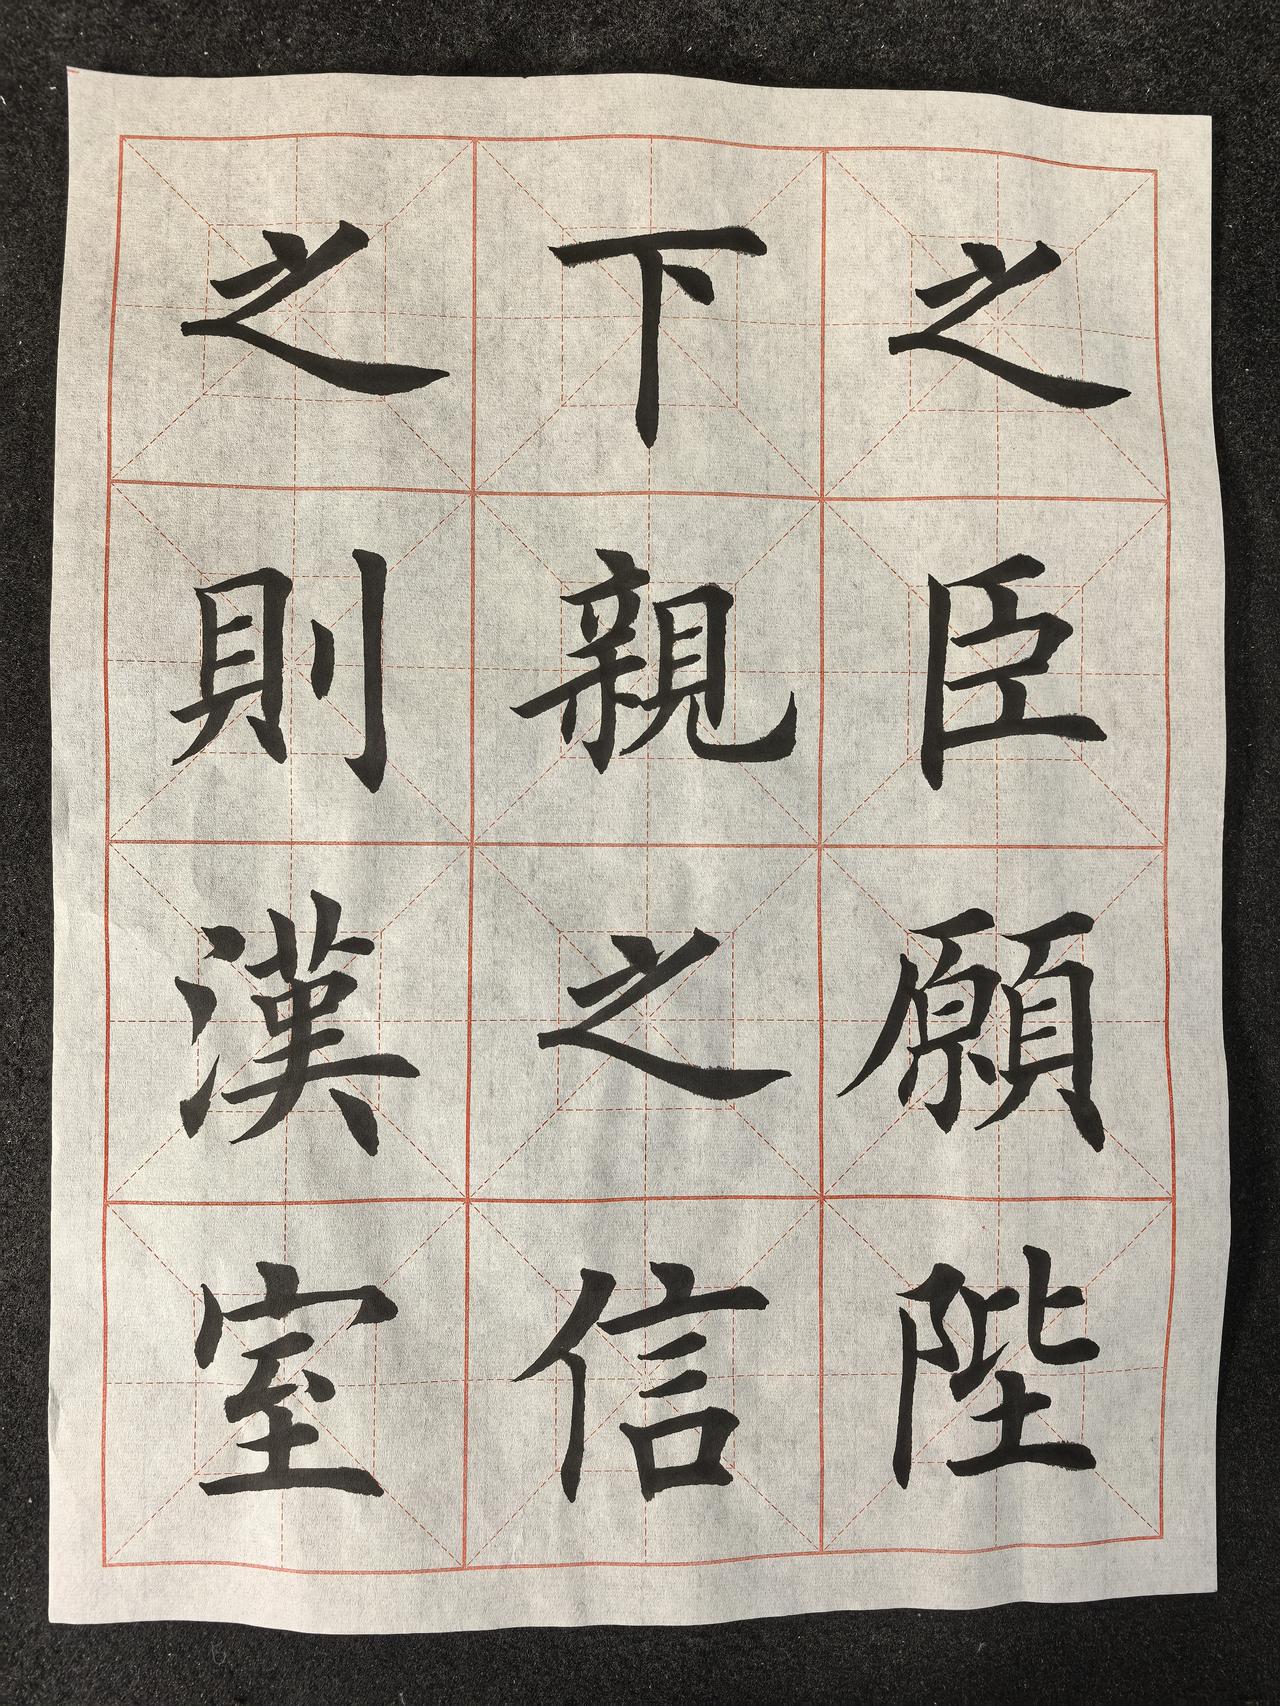 之臣願陛
下親之信
之則漢室